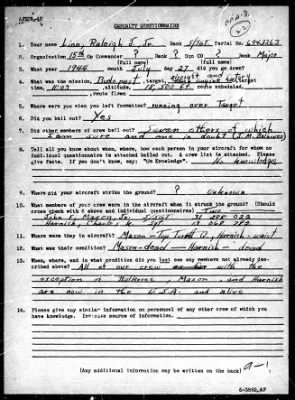 CASUALTY QUESTIONNAIRE
1. Your name Linn, Raleigh J. Jr. Rank S/Sgt. Serial No. 6943263
2. Organization 15th Gp Commander ? Rank ? Sqn CO ? Rank Major
(full name) (full name)
3. What year 1944 month July day 27 did you go down?
4. What was the mission, Budapest, target, target
time, 1103, altitude, 18,500 ft route scheduled,
, route flown
5. Where were you when you left formation? running over Target
6. Did you bail out? Yes
7. Did other members of crew bail out? Seven others of which
I am sure and one in doubt
8. Tell all you know about when, where, how each person in your aircraft for whom no
individual questionnaire is attached bailed out. A crew list is attached. Please
give facts. If you don't know, say: "No Knowledge". No knowledge
9. Where did your aircraft strike the ground? ? Unknown
10. What members of your crew were in the aircraft when it struck the ground? (Should
cross check with 8 above and individual questionnaires) Two
John F. Mason, Jr.
Harnish, Charles
11. Where were they in aircraft? Mason - Top Turret Harnish - waist
12. What was their condition? Mason - dead - Harnish - dead
13. When, where, and in what condition did you last see any members not already des-
cribed above? All of our crew with the
exception of Mason, and Harnish
are now in the U.S.A. and alive
14. Please give any similar information on personnel of any other crew of which you
have knowledge. Indicate source of information.
(Any additional information may be written on the back)
6-3862, AF